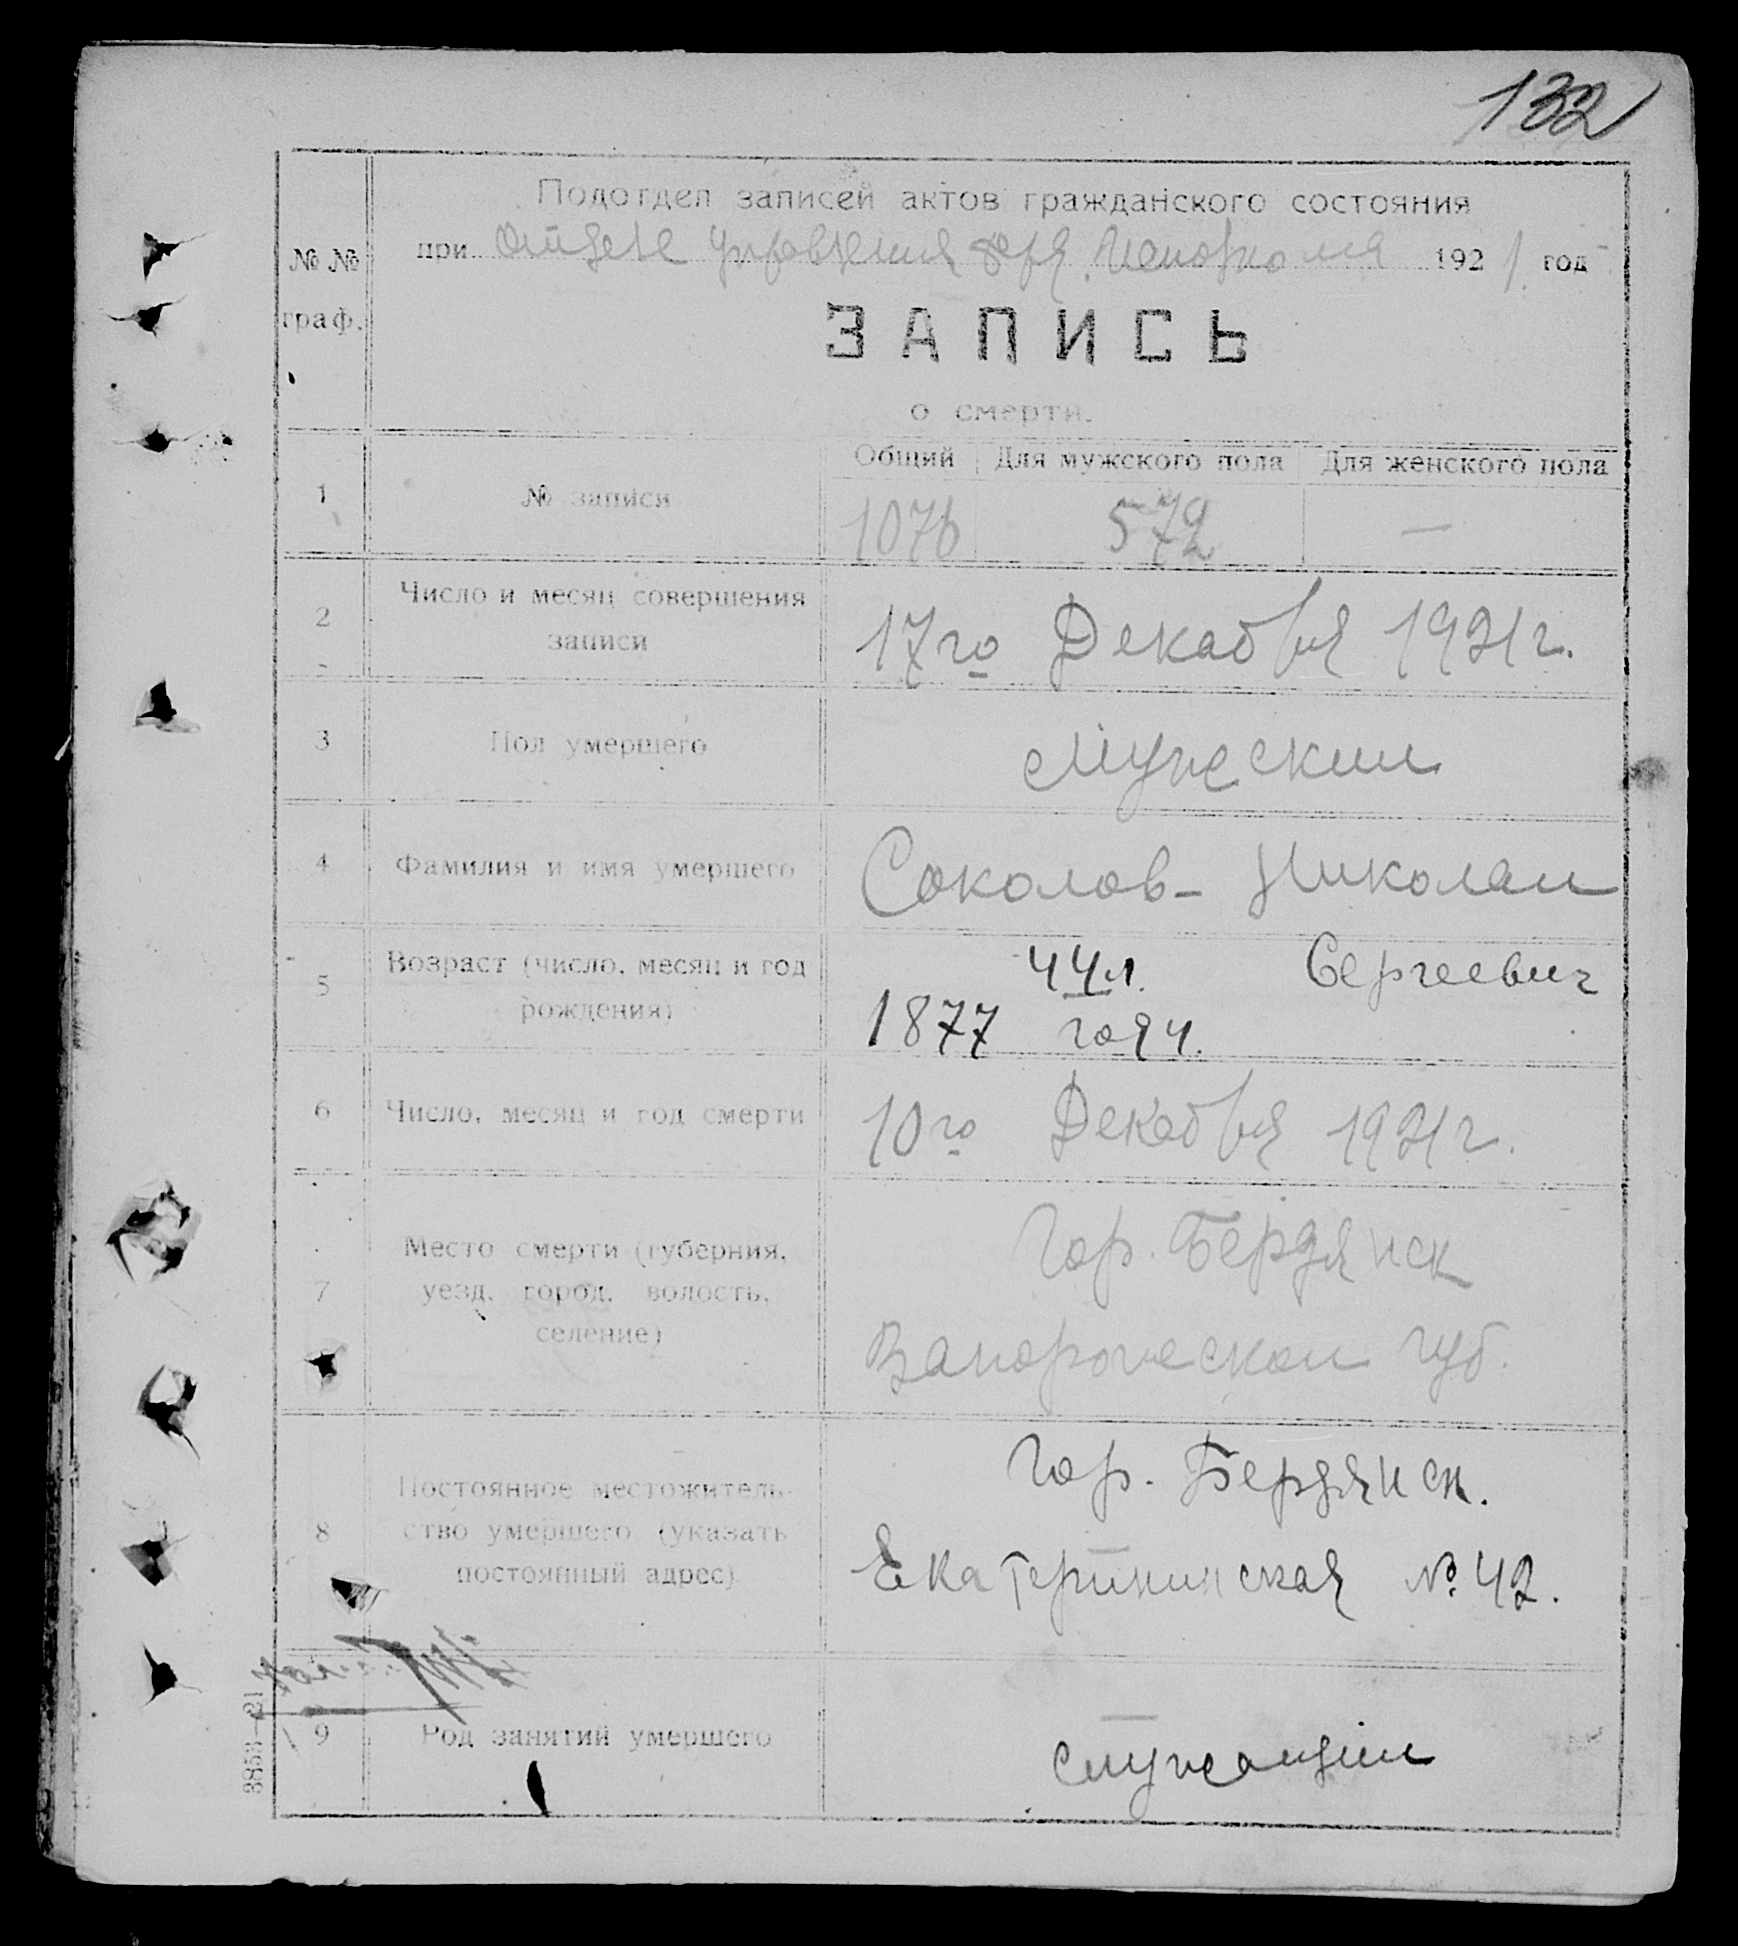 132
Подотдел записей актов гражданского состояния
при Отделе Управления Бер. Исполкома 1921 год
№ №
граф.
ЗАПИСЬ
о смерти.
Общий Для мужского пола Для женского пола
1 № записи 1076 572 —
2 Число и месяц совершения
записи
17го Декабря 1921г.
3 Пол умершего Мужской
4 Фамилия и имя умершего Соколов - Николай
Сергеевич
5 Возраст (число, месяц и год
рождения)
44л.
1877 года.
6 Число, месяц и год смерти 10го Декабря 1921г.
7 Место смерти (губерния,
уезд, город, волость,
селение)
Гор. Бердянск
Запорожской губ.
8 Постоянное местожитель-
ство умершего (указать
постоянный адрес)
Гор. Бердянск.
Екатерининская № 42.
9 Род занятий умершего служащий
3853—21